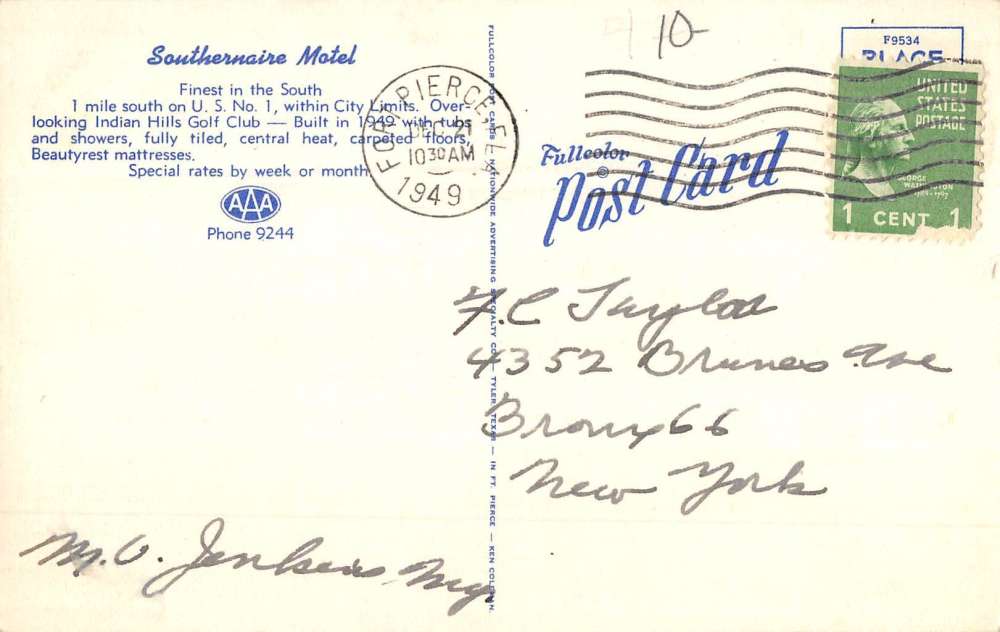 Southernaire Motel
Finest in the South
1 mile south on U. S. No. 1, within City Limits. Over-
looking Indian Hills Golf Club — Built in 1949 with tubs
and showers, fully tiled, central heat, carpeted floors,
Beautyrest mattresses.
Special rates by week or month.
AAA
Phone 9244
M. O. Jenkins Mgr.
FULLCOLOR POST CARDS — NATIONWIDE ADVERTISING SPECIALTY CO. — TYLER, TEXAS — IN FT. PIERCE — KEN COLEMAN.
FORT PIERCE, FLA.
DEC 21
10 30 AM
1949
10
F9534
PLACE
UNITED
STATES
POSTAGE
GEORGE
WASHINGTON
1789-1797
1 CENT 1
Fullcolor
©
Post Card
F.C Taylor
4352 Bruner Ave
Bronx 66
New York